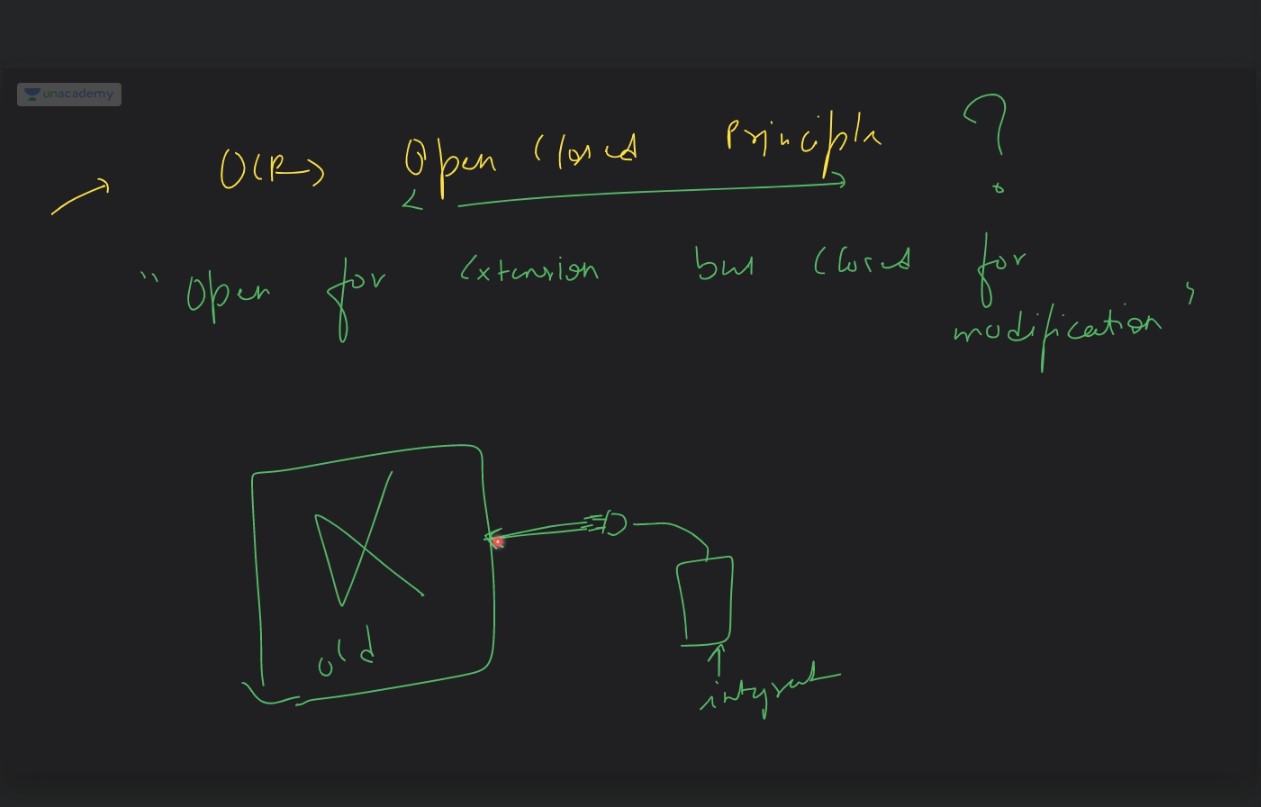 unacademy
OCP → Open Closed Principle ?
"Open for Extension but Closed for
modification"
old
integrate